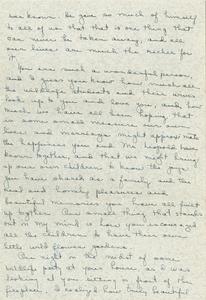 was known. He gave so much of himself
to all of us that that is one thing that
can never be taken away, and all
our lives are much the richer for
it.
You are such a wonderful person,
and I guess you know how much all
the wildlife students and their wives
look up to you and love you, and how
much we have all been hoping that
in some small measure our own
lives and marriage might approximate
the happiness you and Mr. Leopold have
known together, and that we might bring
up our own children to know the joys
you have shared as a family and the
real and homely pleasures and
beautiful memories you have all built
up together. One small thing that stands
out in my mind is how you encouraged
all the children to have their own
little wild flower gardens.
One night in the midst of some
wildlife party at your house, as I was
looking at you sitting in front of the
fireplace, I realized how truly beautiful